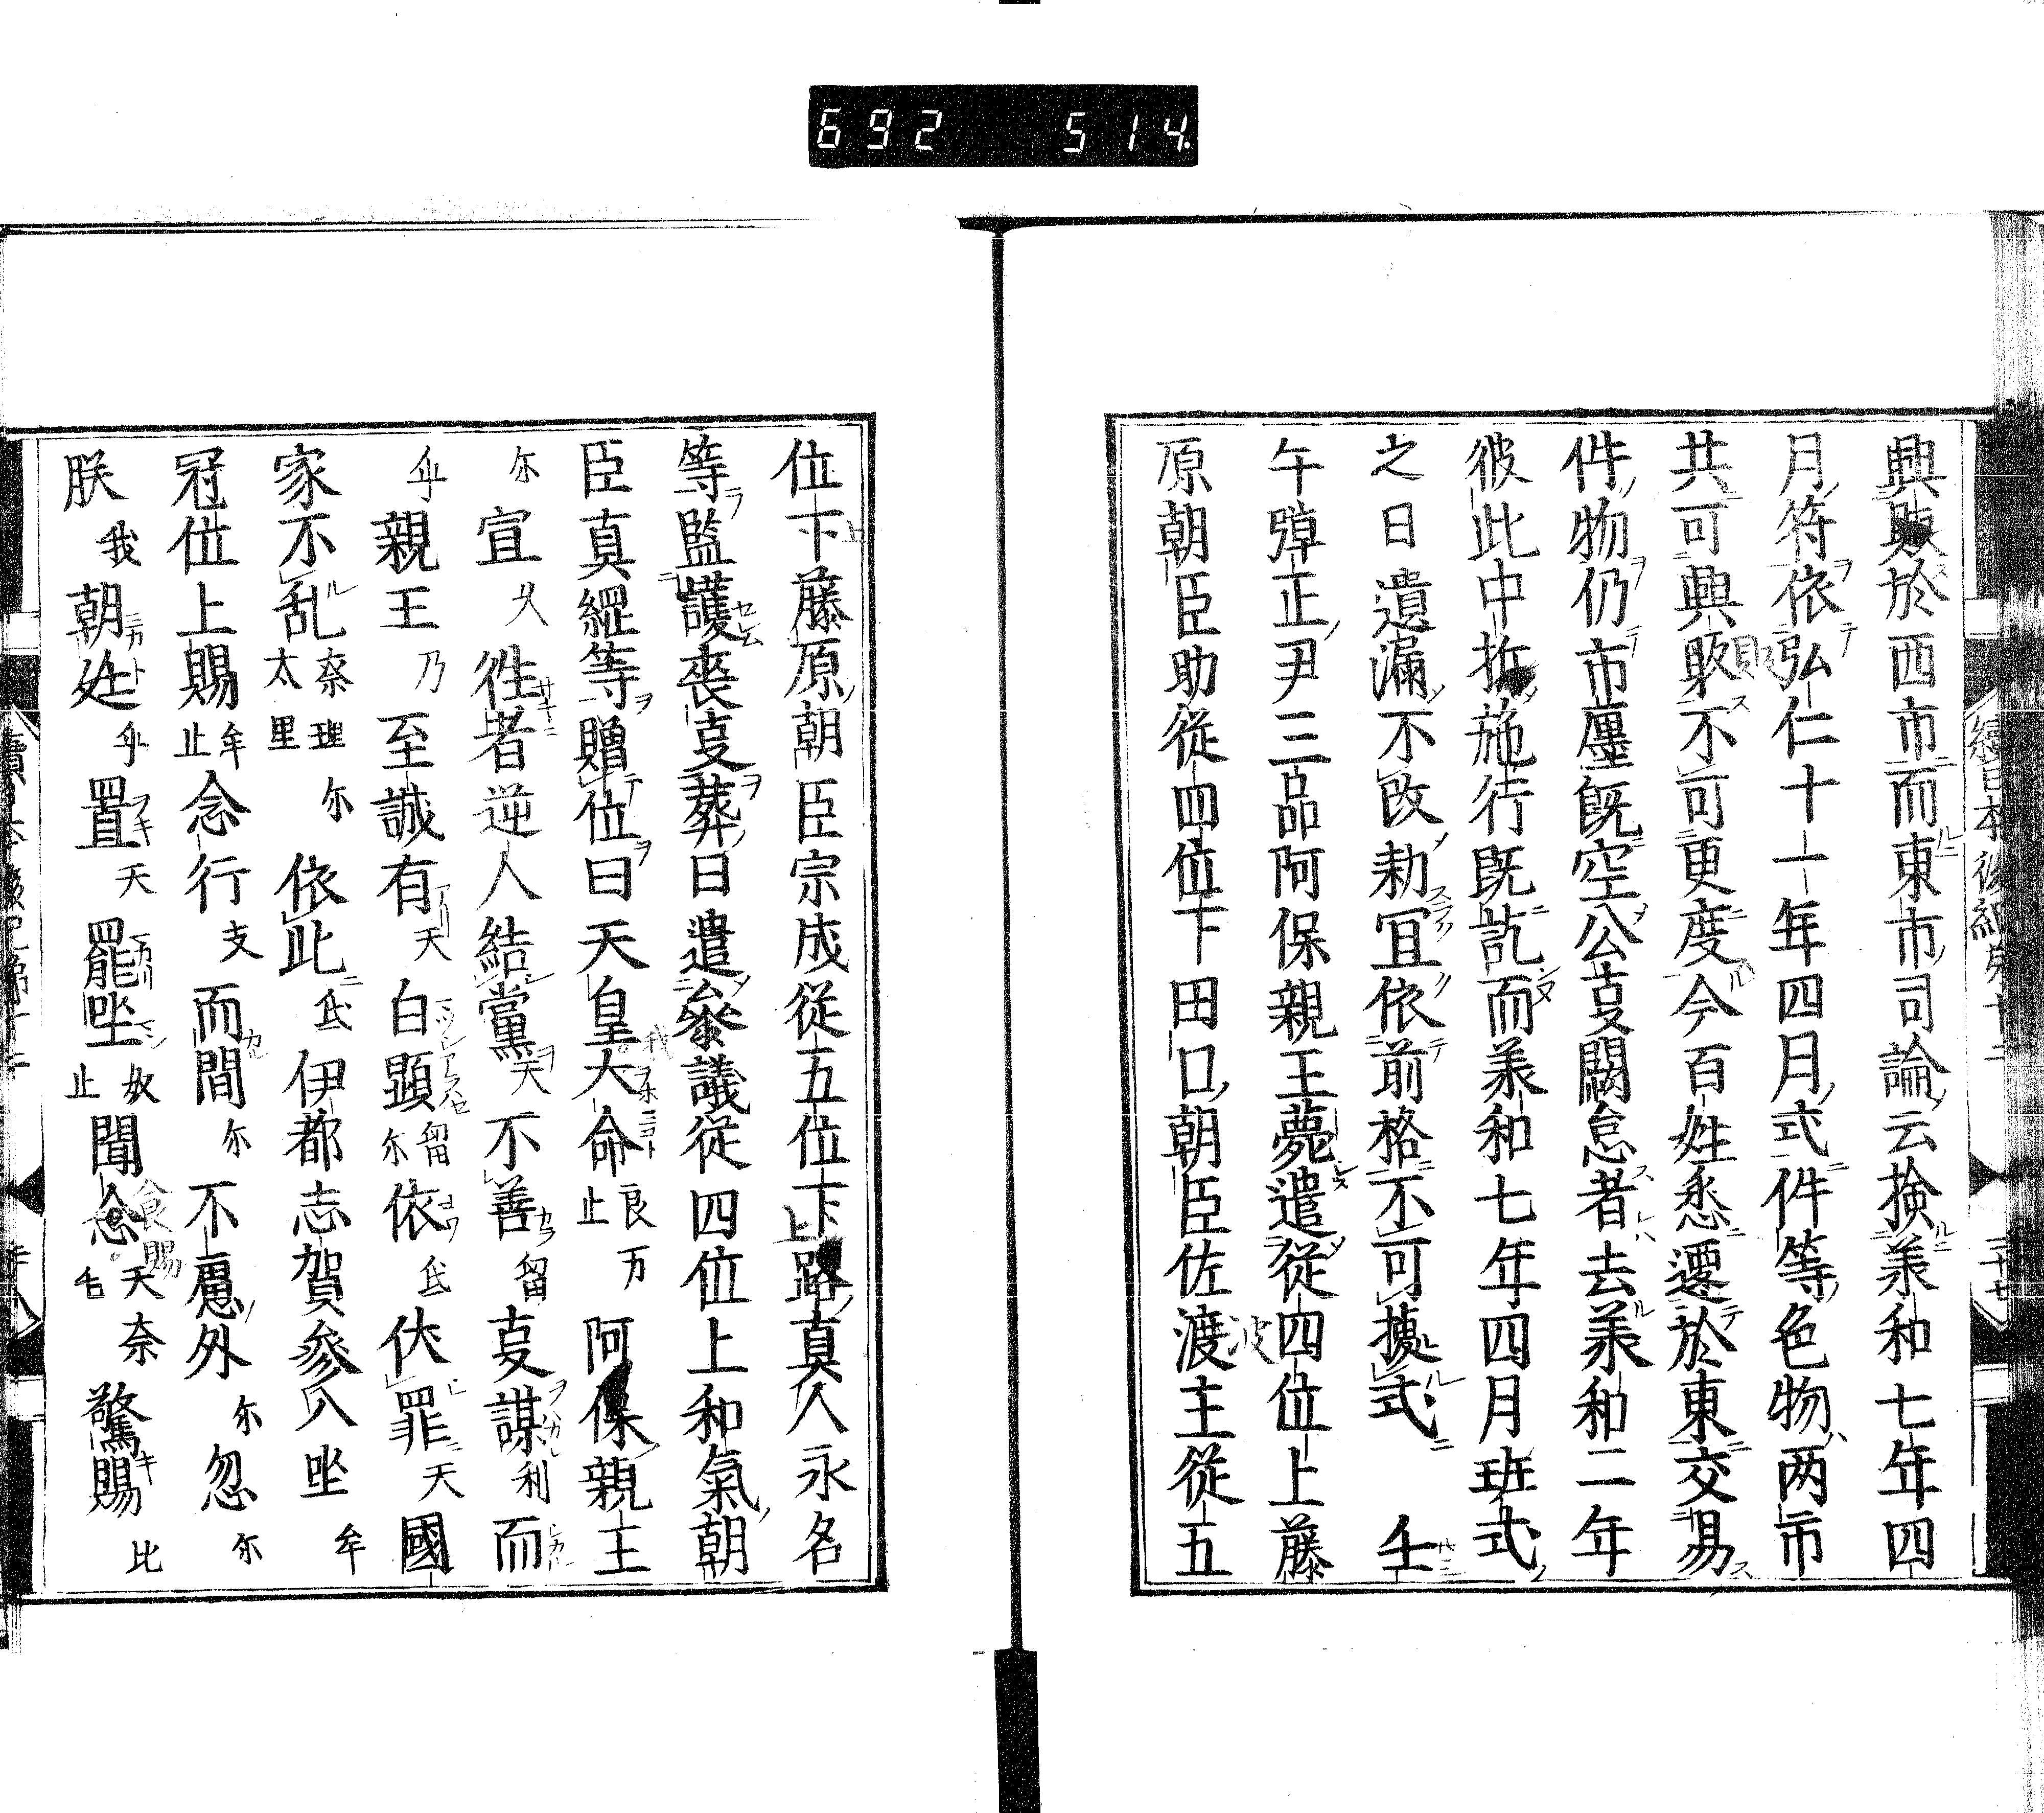 692 514
興販於西市而東市司論云撿羕和七年四
月符依弘仁十一年四月式件等色物两市
共可興敗不可更度今百姓悉遷於東交易
件物仍市廛既空公事闕怠者去羕和二年
彼此中折施行既訖而羕和七年四月班式
之日遺漏不改勅冝依前格不可據式 壬
午弾正尹三品阿保親王薨遣從四位上藤
原朝臣助從四位下田口朝臣佐渡主從五
位下藤原朝臣宗成從五位下路真人永名
等監護喪事葬日遣參議從四位上和氣朝
臣真綱等贈位曰天皇大命良止万阿保親王
尓宣久徃者逆人結黨天不善留事謀利而
乎親王乃至誠有天白顕留尓依氐伏罪天國
家不乱奈太理里尓依此氐伊都志賀參入坐牟
冠位上賜牟止念行支而間尓不慮外尓忽尓
朕我朝廷乎置天罷坐奴止聞念天毛奈驚賜比